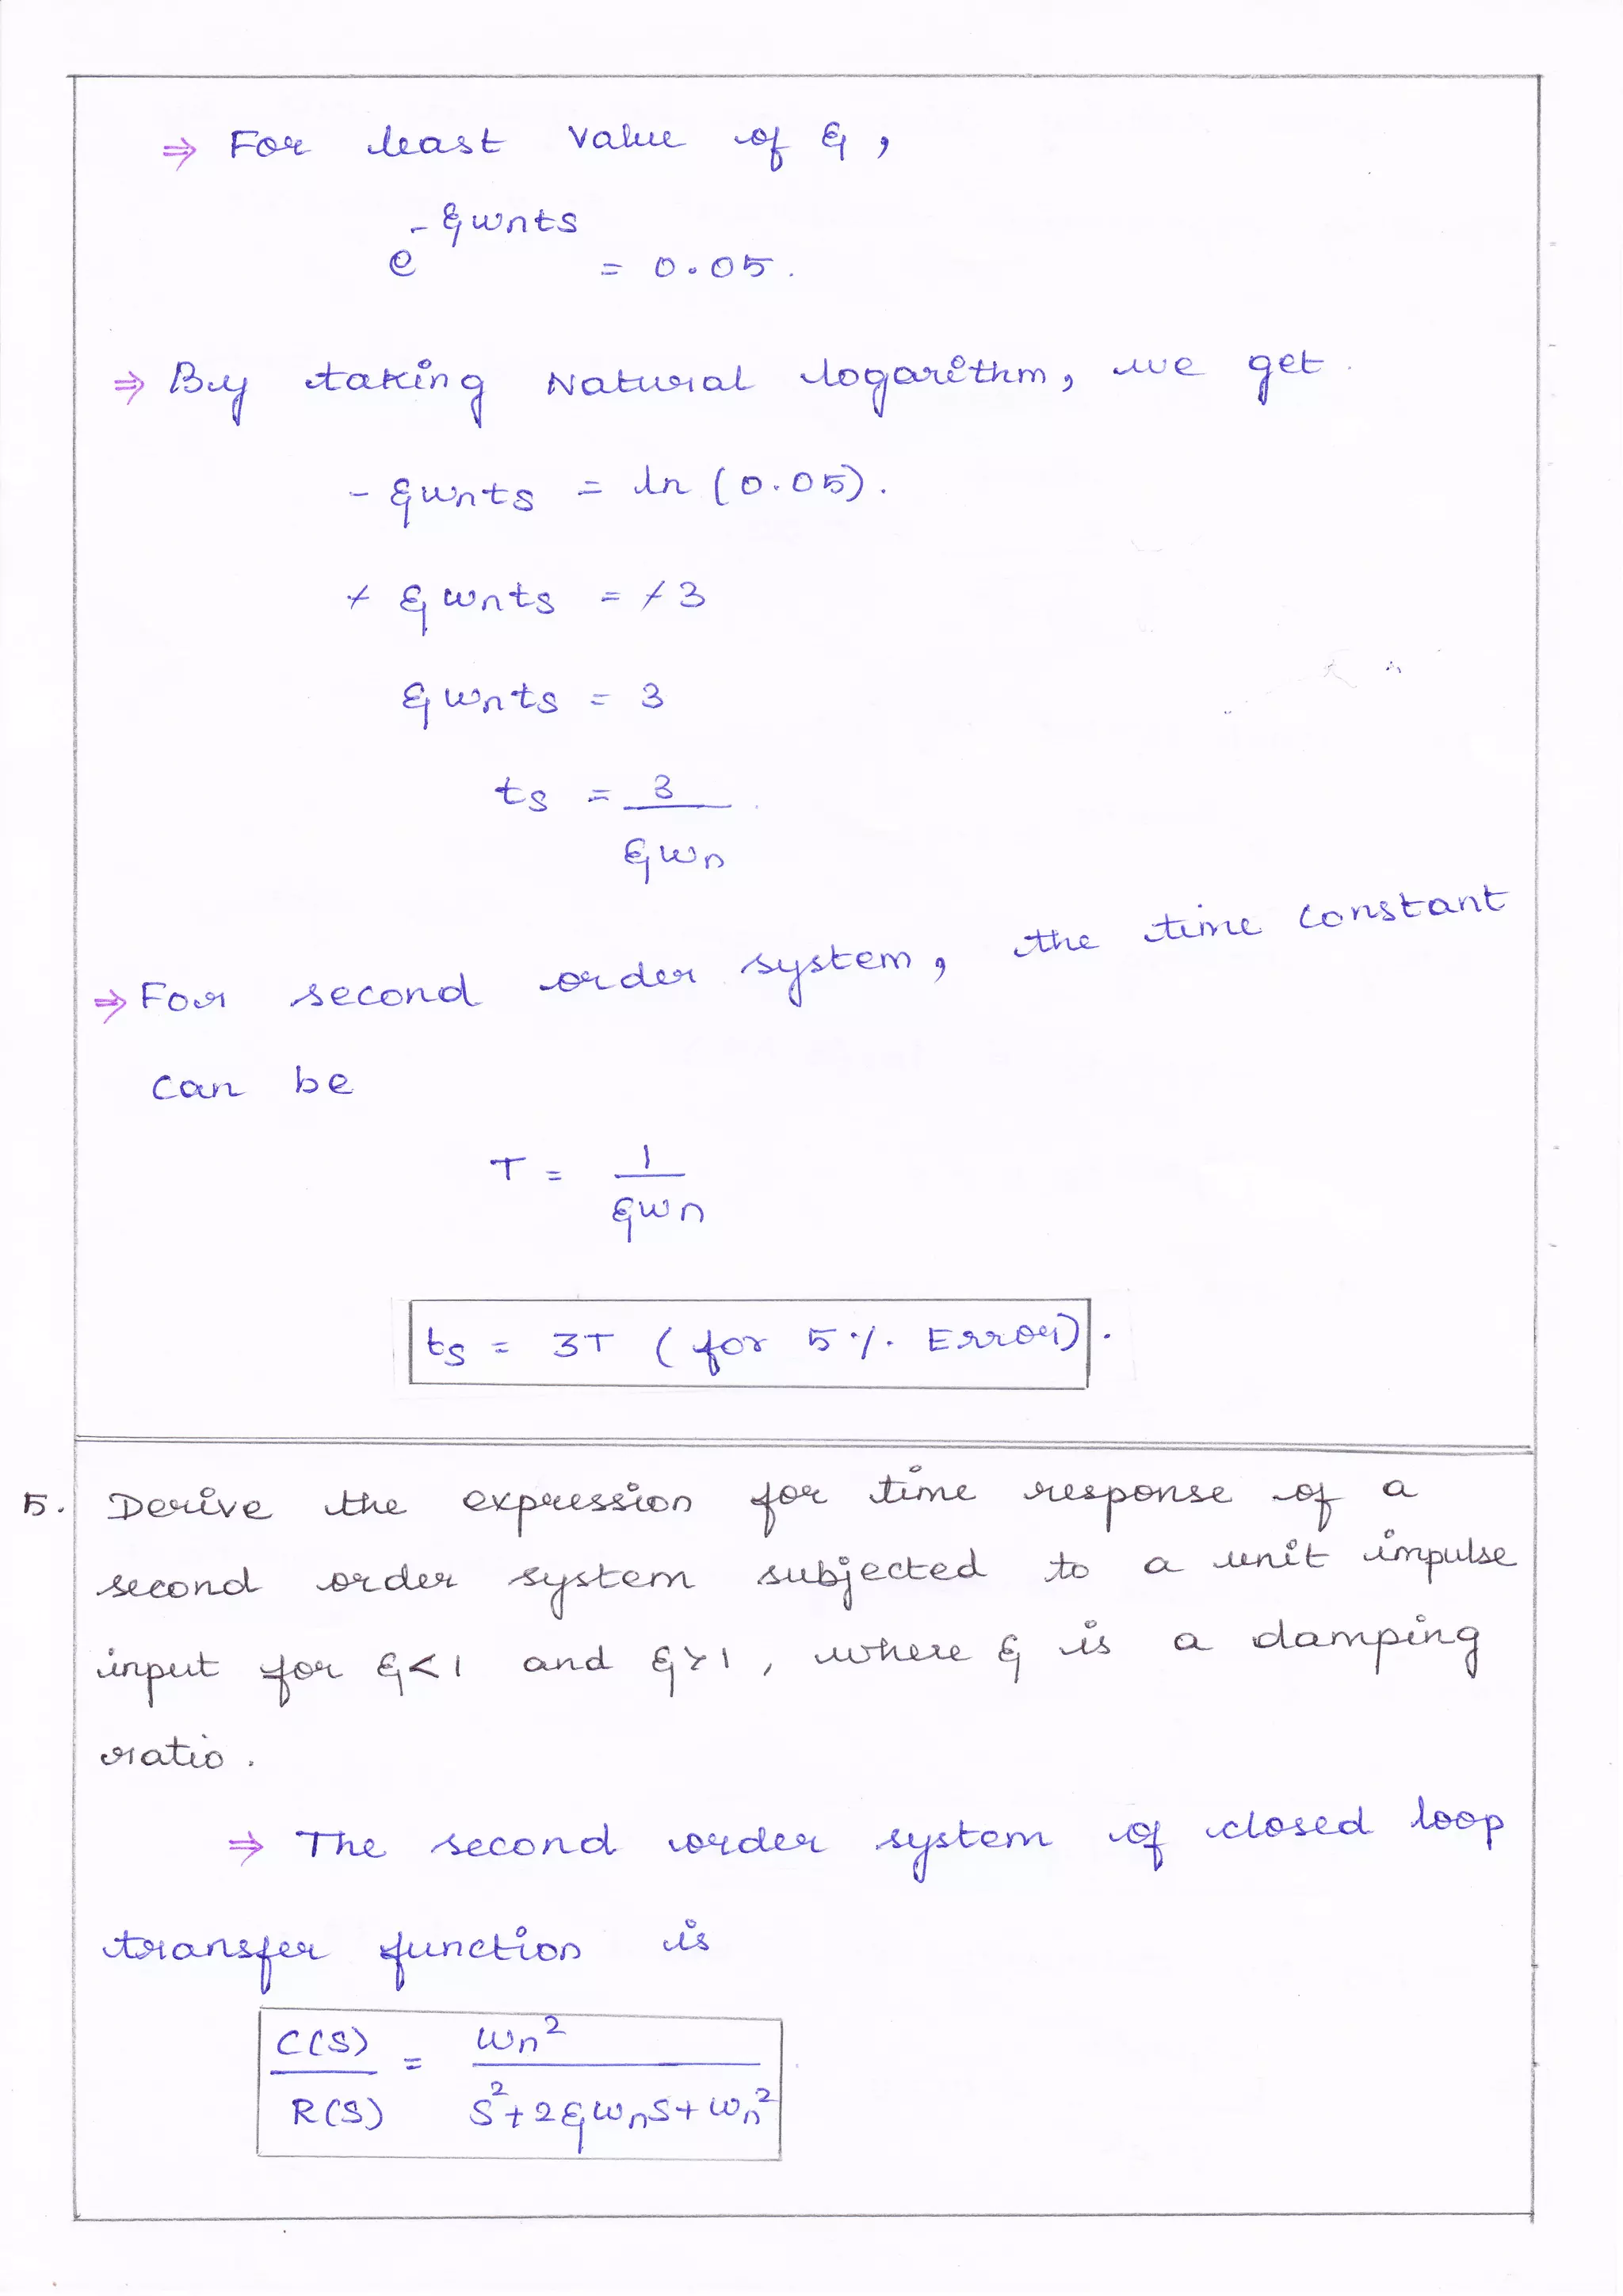 ⇒ For least value of ξ,
e^-ξωnts = 0.05.
⇒ By taking Natural logarithm, we get
- ξωnts = ln (0.05).
- ξωnts = -3
ξωnts = 3
ts = 3/ξωn
⇒ For second order system, the time constant
can be
T = 1/ξωn
ts = 3T (for 5% Error).
5. Derive the expression for time response of a
second order system subjected to a unit impulse
input for ξ<1 and ξ>1, where ξ is a damping
ratio.
⇒ The second order system of closed loop
transfer function is
C(S)/R(S) = ωn²/S²+2ξωnS+ωn²